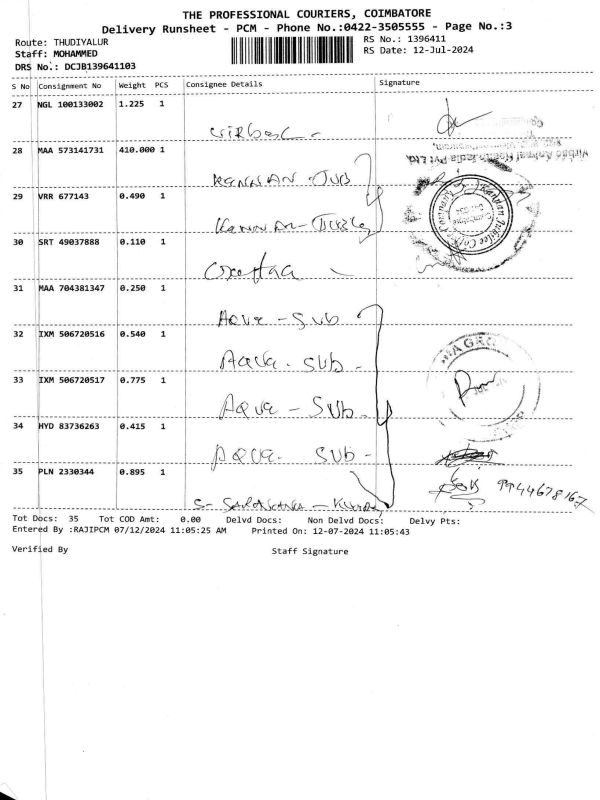 THE PROFESSIONAL COURIERS, COIMBATORE
Delivery Runsheet - PCM - Phone No.:0422-3505555 - Page No.:3
Route: THUDIYALUR
RS No.: 1396411
Staff: MOHAMMED
RS Date: 12-Jul-2024
DRS No.: DCJB139641103
S No Consignment No Weight PCS Consignee Details Signature
27 NGL 100133002 1.225 1
Virbac -
28 MAA 573141731 410.000 1
Virbac Animal Health India Pvt Ltd.
KANNAN - JUB
29 VRR 677143 0.490 1
KANNAN - Juble
30 SRT 49037888 0.110 1
31 MAA 704381347 0.250 1
Aqua - Sub
32 IXM 506720516 0.540 1
Aqua - Sub -
33 IXM 506720517 0.775 1
AGRO
Aqua - Sub -
34 HYD 83736263 0.415 1
Aqua - Sub -
35 PLN 2330344 0.895 1
9944678167
S-
Tot Docs: 35 Tot COD Amt: 0.00 Delvd Docs: Non Delvd Docs: Delvy Pts:
Entered By :RAJIPCM 07/12/2024 11:05:25 AM Printed On: 12-07-2024 11:05:43
Verified By Staff Signature